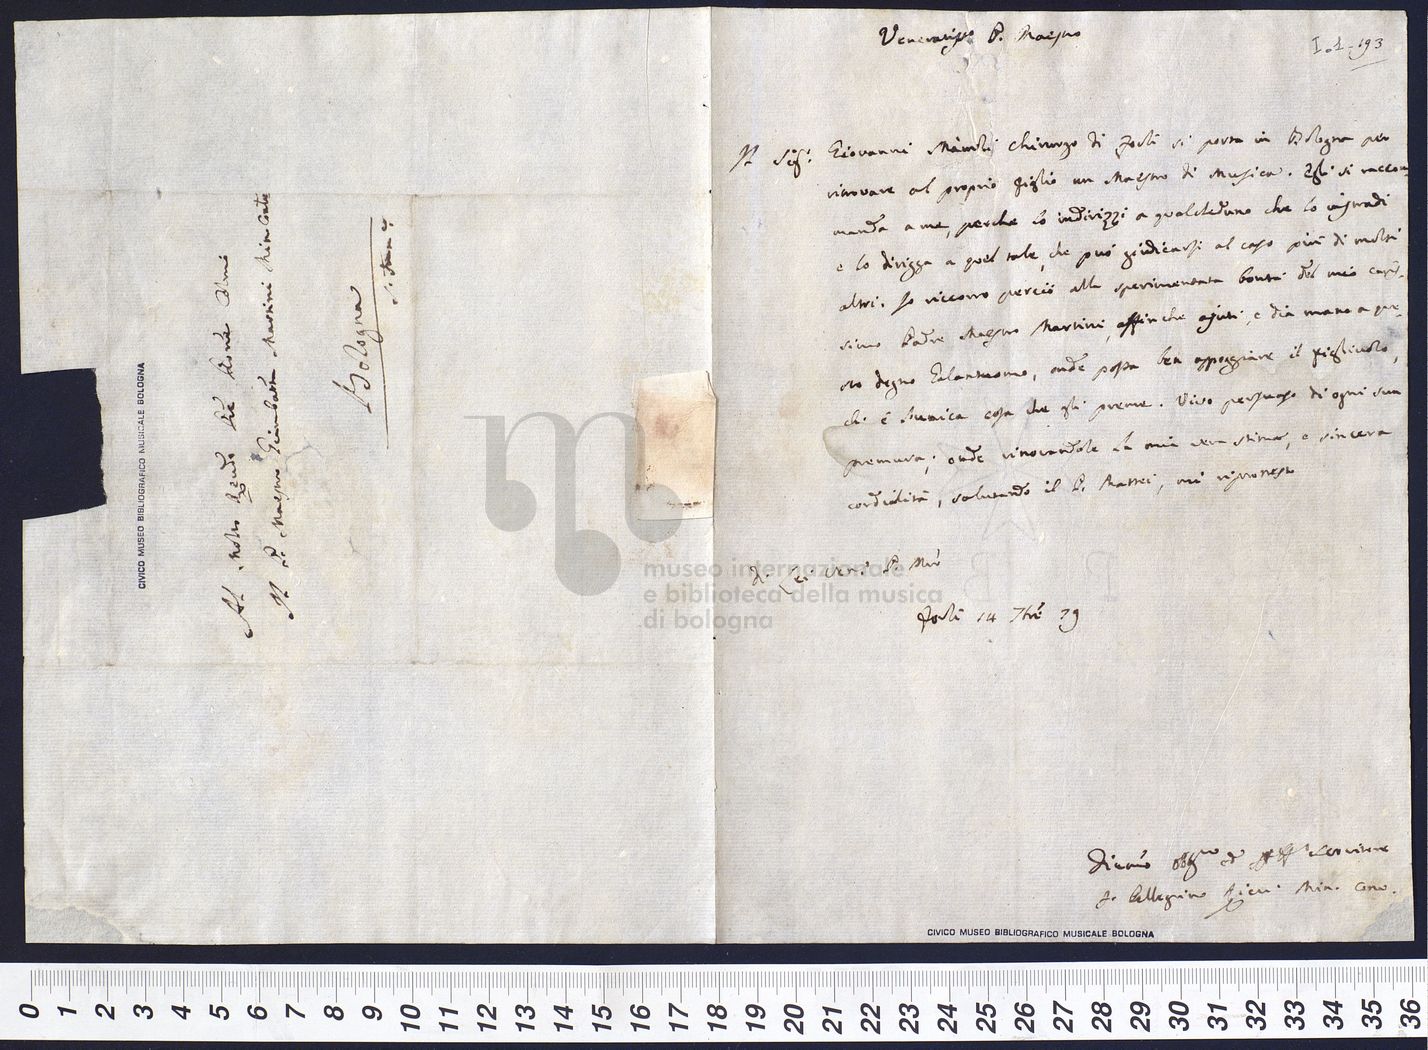 Veneratissmo P. Maestro
I.1-193
Il Sigr. Giovanni Mainoli chirurgo di Forlì si porta in Bologna per
ritrovare al proprio figlio un Maestro di Musica. Egli si raccom-
manda a me, perche lo indirizzi a qualcheduno che lo
e lo dirigga a quel tale, che può giudicarsi al caso più di molti
altri. Io riccorro perciò alla sperimentata bontà del mio caris-
simo Padre Maestro Martini, affinche ajuti, e dia mano a que-
sto degno Galantuomo, onde possa ben appoggiare il figliuolo,
ch'è l'unica cosa che gli preme. Vivo persuaso di ogni sua
premura; onde rinovandole la mia vera stima, e sincera
cordialità, salutando il P. Mattei, mi riprotesto
Di Lei Ven. P. Mro
Forlì 14 7bre 79
Divmo obbmo ed Servitore
F. Pellegrino Min. Conv.
CIVICO MUSEO BIBLIOGRAFICO MUSICALE BOLOGNA
Al Molto Rdo Pre Prone
Il P. Maestro Giambatta Martini Min Conle
Bologna
CIVICO MUSEO BIBLIOGRAFICO MUSICALE BOLOGNA
museo internazionale
e biblioteca della musica
di bologna
0 1 2 3 4 5 6 7 8 9 10 11 12 13 14 15 16 17 18 19 20 21 22 23 24 25 26 27 28 29 30 31 32 33 34 35 36